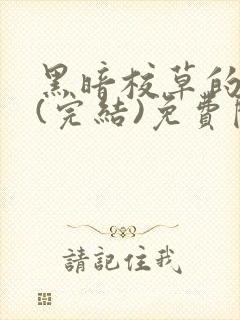 黑暗校草的
(完結)免費
請記住我